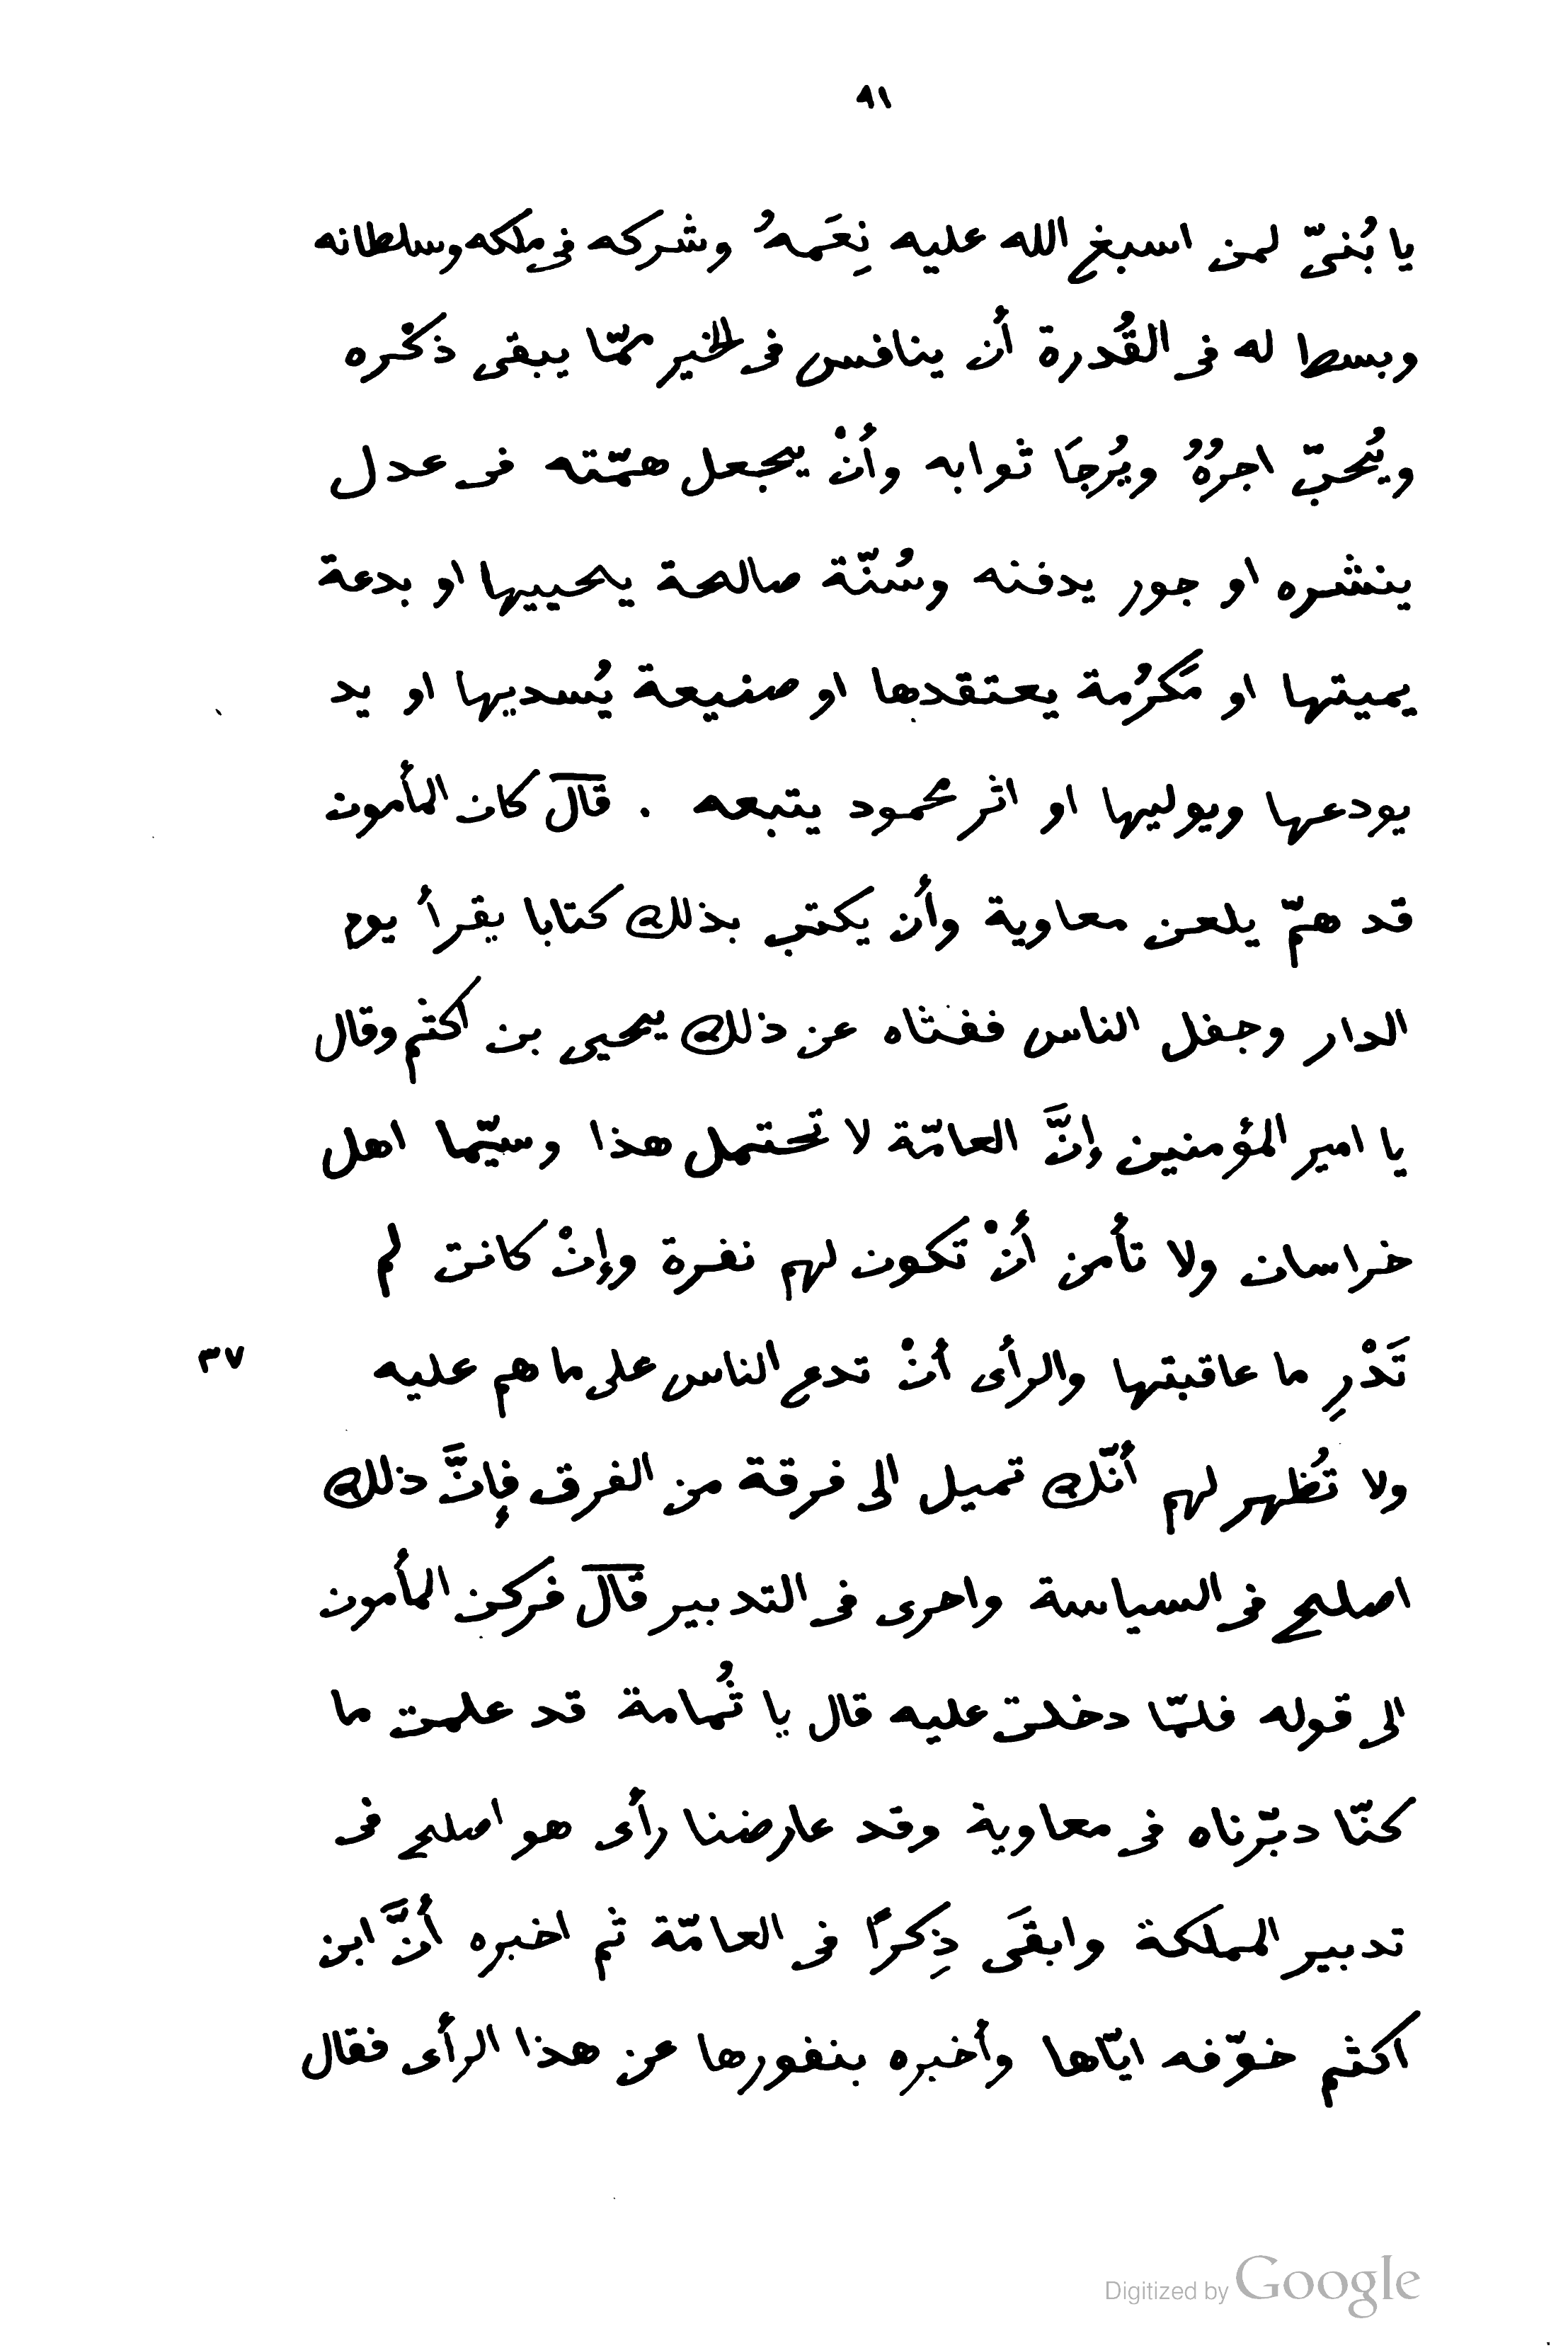 ٩١
يا بُنىّ لمن اسبغ الله عليه نِعَمهُ وشركه فى ملكه وسلطانه
وبسط له فى القُدرة أن ينافس فى الخير ممّا يبقى ذكْره
ويُحبّ اجرُهُ ويُرجَا ثوابه وأنْ يجعل همّته فى عدل
ينشره او جور يدفنه وسُنّة صالحة يحييها او بدعة
يميتها او مَكرُمة يعتقدها او صنيعة يُسديها او يد
يودعها ويوليها او اثر محمود يتبعه . قال كان المأمون
قد همّ يلعن معاوية وأن يكتب بذلك كتابا يقرأ يوم
الدار وجفل الناس ففثاه عن ذلك يحيى بن اكثم وقال
يا امير المؤمنين إنَّ العامّة لا تحتمل هذا وسيّما اهل
خراسان ولا تأمن أنْ تكون لهم نفرة وإنْ كانت لم
تَدْرِ ما عاقبتها والرأى أنْ تدع الناس على ما هم عليه ٣٧
ولا تُظهر لهم أنّك تميل الى فرقة من الفرق فإنَّ ذلك
اصلح فى السياسة واحرى فى التدبير قال فركن المأمون
الى قوله فلمّا دخلت عليه قال يا ثُمامة قد علمت ما
كنّا دبّرناه فى معاوية وقد عارضنا رأى هو اصلح فى
تدبير المملكة وابقَى ذِكرًا فى العامّة ثم اخبره أنَّ ابن
اكثم خوّفه ايّاها وأخبره بنفورها عن هذا الرأى فقال
Digitized by Google